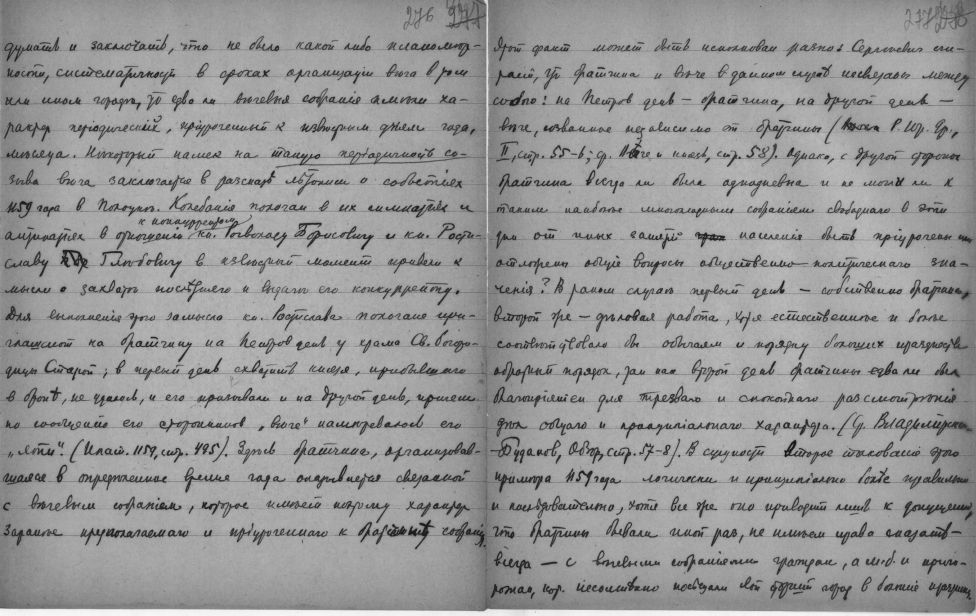 276
думать и заключать, что не было какой либо планомѣр-
ности, систематичности в сроках организаціи вѣча в том
или ином городѣ, то едва ли вѣчевыя собранія имѣли ха-
рактер періодическій, пріуроченный к извѣстным дням года,
мѣсяца. Нѣкоторый намек на такую періодичность со-
зыва вѣча заключается в разсказѣ лѣтописи о событіях
1159 года в Полоцкѣ. Колебанія полочан в их симпатіях и
к конкуррентам
антипатіях в отношеніи кн. Рогволоду Борисовичу и кн. Рости-
славу Глѣбовичу в извѣстный момент привели к
мысли о захватѣ послѣдняго и выдачѣ его конкурренту.
Для выполненія этого замысла кн. Ростислава полочане при-
глашают на братчину на Петров день у храма Св. Богоро-
дицы Старой; в первый день схватить князя, прибывшаго
в бронѣ, не удалось, и его призывали и на другой день, причем
по сообщенію его сторонников „вѣче" намѣревалось его
„яти". (Ипат. 1159, стр. 495). Здѣсь братчина, организовав-
шаяся в опредѣленное время года оказывается связанной
с вѣчевым собраніем, которое имѣет потому характер
заранѣе предполагаемаго и пріуроченнаго к собранія.
277
Этот факт может быть истолкован разно. Сергѣевич счи-
тает, что братчина и вѣче в данном случаѣ несвязаны между
собою: на Петров день — братчина, на другой день —
вѣче, созванное независимо от братчины (Р. Юр. Др.,
II, стр. 55-6; ср. Вѣче и князь, стр. 58). Однако, с другой стороны
братчина всегда ли была однодневна и не могли ли к
таким наиболѣе многолюдным собраніем свободнаго в эти
дни от иных занятій населенія быть пріурочены или
отложены общіе вопросы общественно-политическаго зна-
ченія? В таком случаѣ первый день — собственно братчина,
второй же — дѣловая работа, хотя естественнѣе и болѣе
соотвѣтствовало бы обычаям и порядку больших празднеств
обратный порядок, так как второй день братчины едва ли был
благопріятен для трезваго и спокойнаго разсмотрѣнія
дѣл общаго и принципіальнаго характера. (Ср. Владимірскій-
-Буданов, Обзор, стр. 57-8). В сущности второе толкованіе этого
примѣра 1159 года логически и принципіально болѣе правильно
и послѣдовательно, хотя все же оно приводит лишь к допущенію,
что братчины бывали иной раз, не имѣем права сказать —
всегда — с вѣчевыми собраніями граждан, а м.б. и приго-
рожан, кот. несомнѣнно посѣщали свой старшій город в большіе праздники